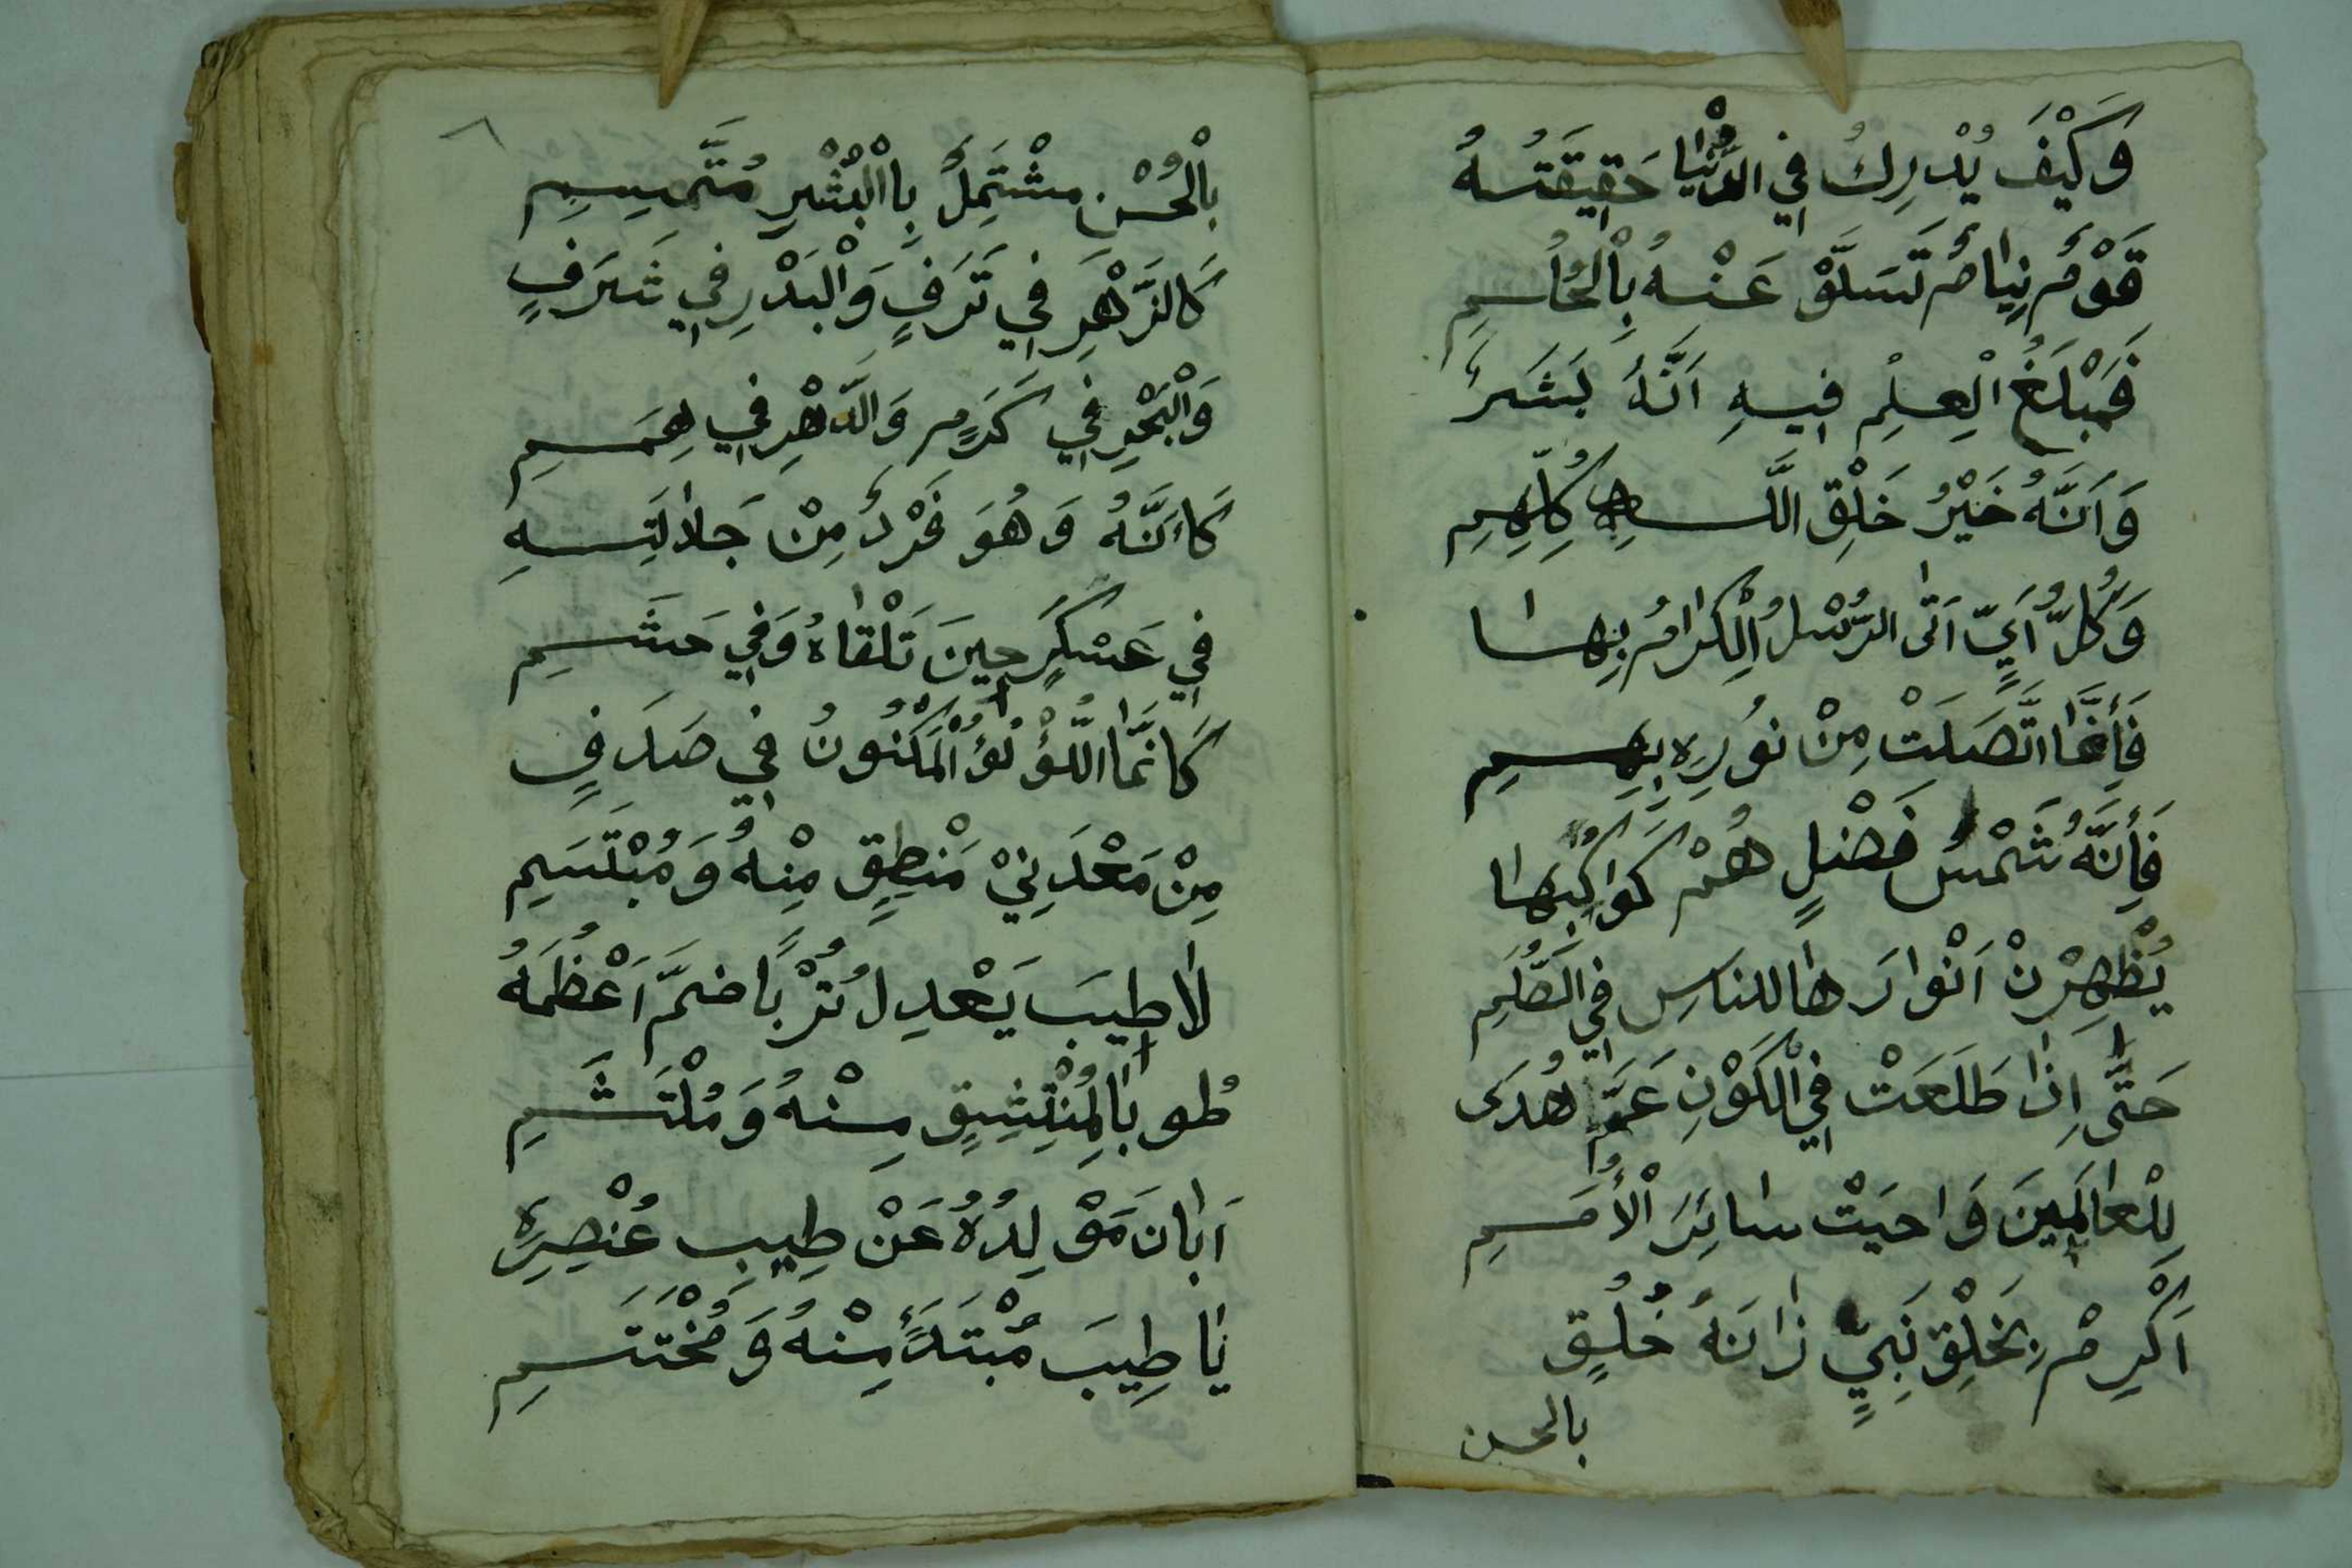 وَكَيْفَ يُدْرِكُ فِي الدُّنْيَا حَقِيقَتَهُ
قَوْمٌ نِيَامٌ تَسَلَّوْ عَنْهُ بِالْحُلُمِ
فَمَبْلَغُ الْعِلْمِ فِيهِ اَنَّهُ بَشَرٌ
وَاَنَّهُ خَيْرُ خَلْقِ اللَّهِ كُلِّهِمِ
وَكُلُّ اَيٍّ اَتَى الرُّسْلُ الْكِرَامُ بِهَا
فَاِنَّمَا اتَّصَلَتْ مِنْ نُورِهِ بِهِمِ
فَاِنَّهُ شَمْسُ فَضْلٍ هُمْ كَوَاكِبُهَا
يُظْهِرْنَ اَنْوَارَهَا لِلنَاسِ فِي الظُّلَمِ
حَتَّى اِذَا طَلَعَتْ فِي الْكَوْنِ عَمَّ هُدَى
لِلْعَالَمِينَ وَاحيَتْ سَائِرَ الْأُمَمِ
اَكْرِمْ بِخَلْقِ نَبِيٍّ زَانَهُ خُلُقٍ
بالحسن
٨
بِالْحُسْنِ مشْتَمِلٌ بِاالْبُشْرِ مُتَّسِمِ
كَالزَّهْرِ فِي تَرَفٍ وَالْبَدْرِ فِي شَرَفٍ
وَالْبَحْرِ فِي كَرَمٍ وَالدَّهْرِ فِي هِمَمِ
كَاَنَّهُ وَهُوَ فَرْدٌ مِنْ جَلَالَتِهِ
فِي عَسْكَرٍ حِينَ تَلْقَاهُ وَفِي حَشَمِ
كَانَّمَا اللُّؤْلُؤُ الْمَكْنُونُ فِي صَدَفٍ
مِنْ مَعْدَنِيْ مَنْطِقٍ مِنْهُ وَمُبْتَسَمِ
لَا طِيبَ يَعْدِلُ تُرْبًا ضمَّ اَعْظُمَهُ
طُوبَا لِمُنْتَشِقٍ مِنْهُ وَمُلْتَثِمِ
اَبَانَ مَوْلِدُهُ عَنْ طِيبِ عُنْصِرِهِ
يَا طِيبَ مُبْتَدَءٍ مِنْهُ وَمُخْتَتَمِ